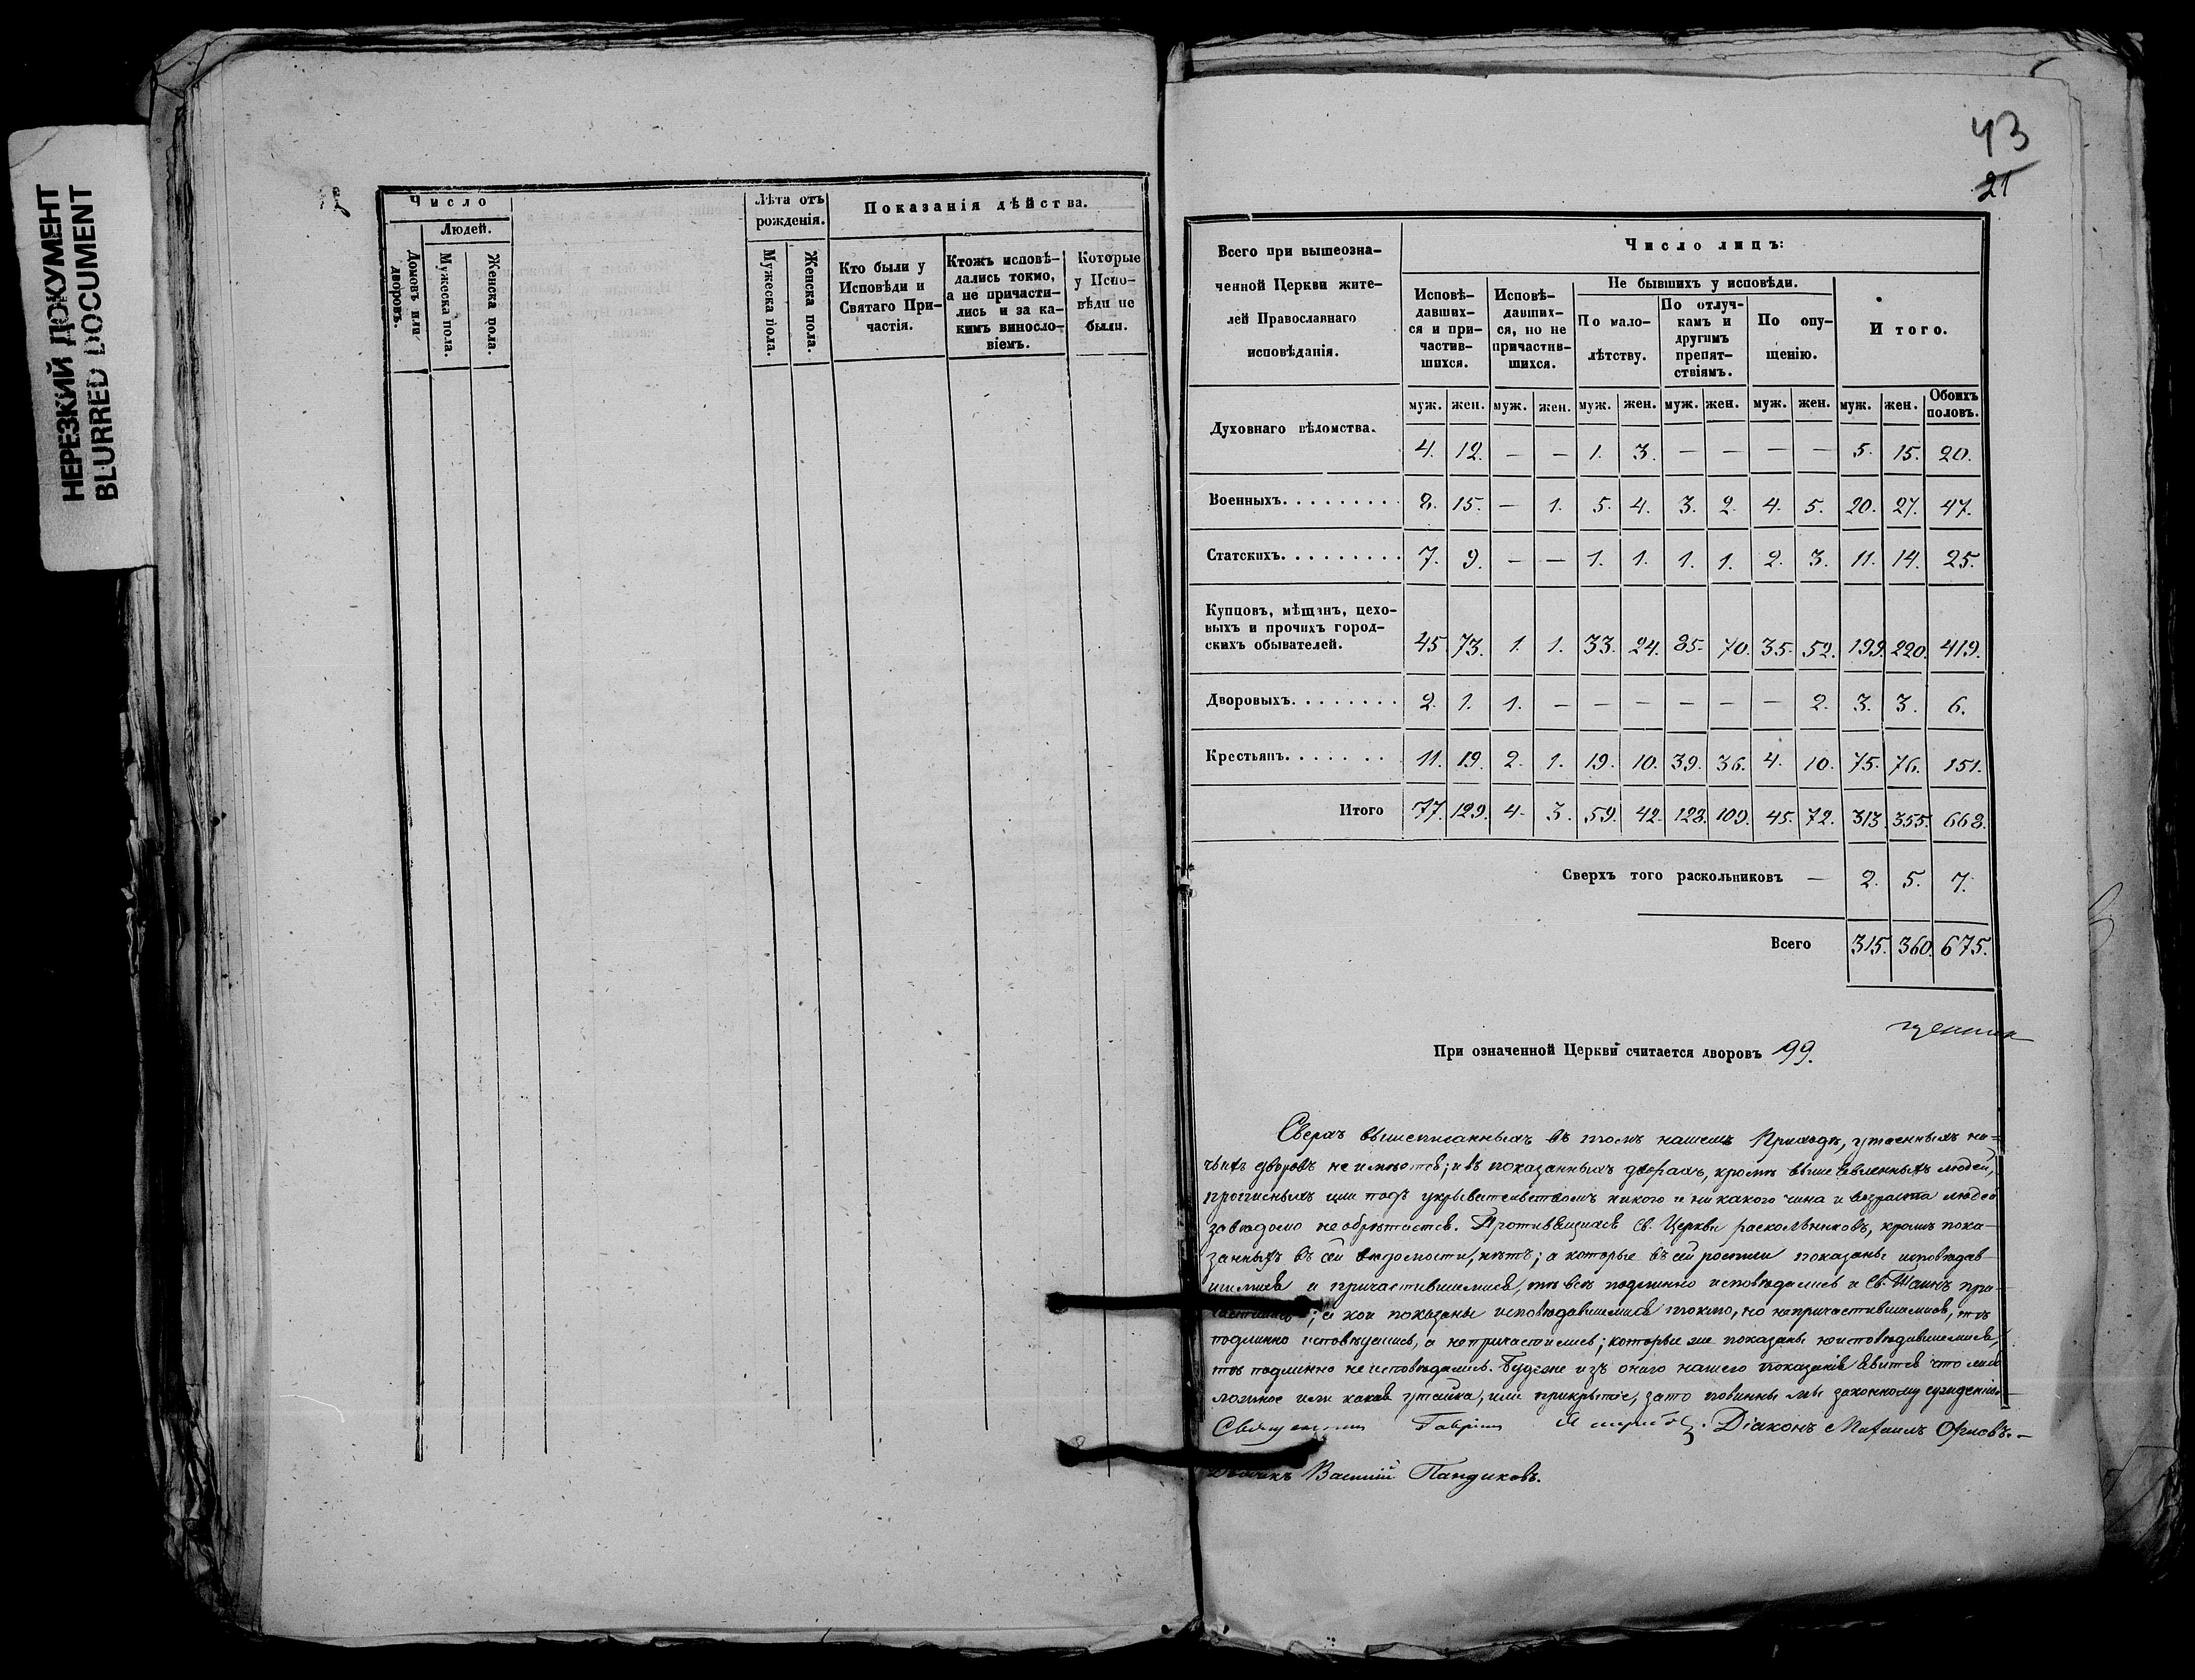 НЕРЕЗКИЙ ДОКУМЕНТ
BLURRED DOCUMENT
Число
Людей.
Домовъ или дворовъ.
Мужеска пола.
Женска пола.
Лѣта отъ рожденія.
Мужеска пола.
Женска пола.
Показанія дѣйства.
Кто были у Исповѣди и Святаго При-частія.
Ктожъ исповѣ-дались токмо, а не причасти-лись и за ка-кимъ винословіемъ.
Которые у Испо-вѣди не были.
43
21
Всего при вышеозна-
ченной Церкви жите-
лей Православнаго
исповѣданія.
Число лицъ:
Исповѣ-давших-ся и при-частив-шихся.
Исповѣ-давших-ся, но не причастив-шихся.
Не бывшихъ у исповѣди.
По мало-лѣтству.
По отлуч-камъ и другимъ препят-ствіямъ.
По опу-щенію.
Итого.
муж. жен. муж. жен. муж. жен. муж. жен. муж. жен. муж. жен. Обоихъ половъ.
Духовнаго вѣдомства. 4. 12. — — 1. 3. — — — — 5. 15. 20.
Военныхъ. 8. 15. — 1. 5. 4. 3. 2. 4. 5. 20. 27. 47.
Статскихъ. 7. 9. — — 1. 1. 1. 1. 2. 3. 11. 14. 25.
Купцовъ, мѣщанъ, цехо-
выхъ и прочихъ город-
скихъ обывателей. 45. 73. 1. 1. 33. 24. 85. 70. 35. 52. 199. 220. 419.
Дворовыхъ. 2. 1. 1. — — — — — — 2. 3. 3. 6.
Крестьянъ. 11. 19. 2. 1. 19. 10. 39. 36. 4. 10. 75. 76. 151.
Итого 77. 129. 4. 3. 59. 42. 128. 109. 45. 72. 313. 355. 668.
Сверхъ того раскольниковъ — 2. 5. 7.
Всего 315. 360. 675.
При означенной Церкви считается дворовъ 99.
Сверхъ вышеписанныхъ въ томъ нашемъ Приходѣ, утаенныхъ ни=
чьихъ дворовъ не имѣется; и въ показанныхъ дворахъ, кромѣ выше явленныхъ людей,
прописныхъ или подъ укрывательствомъ никого и никакого чина и возраста людей
завѣдомо не обрѣтается. Противящихся Св. Церкви раскольниковъ, кромѣ пока-
занныхъ въ сей вѣдомости, нѣтъ; а которые въ сей росписи показаны исповѣдав-
шимися и причастившимися, тѣ всѣ подлинно исповѣдались и Св. Таинъ при-
частились; а кои показаны исповѣдавшимися токмо, но непричастившимися, тѣ
подлинно исповѣдались, а непричастились; которые же показаны неисповѣдавшимися,
тѣ подлинно не исповѣдались. Буде же изъ онаго нашего показанія явится что либо
ложное или какая утайка, или прикрытіе, за то повинны мы законному сужденію
Священникъ Гавріилъ Діаконъ Михаилъ Орловъ.—
Дьячекъ Василій Пандиковъ.